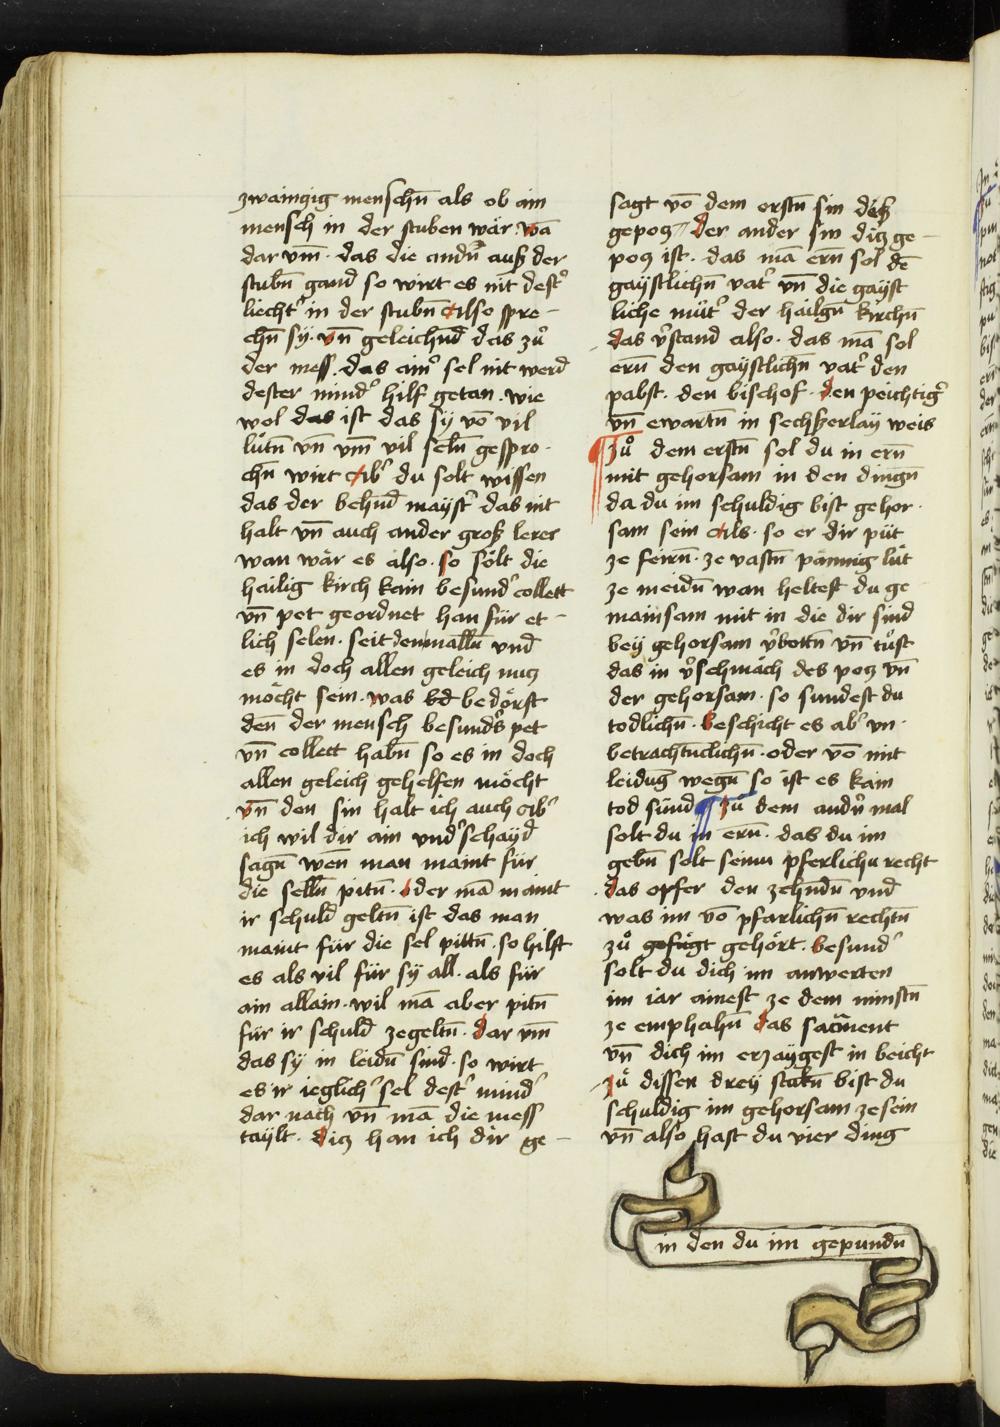 zwaingig menschn̄ als ob ain
mensch in der stuben wär. wā
dar vm̄. das die andn̄ auß der
stubn̄ gand so wirt es nit destˀ
liechtˀ in der stubn̄ Also spre-
chn̄ sy. vn̄ geleichnd̄ das zů
der mess. das aimˀ sel nit werd̄
dester mindˀ hilf getan. wie
wol das ist das sy vō vil
lütn̄ vn̄ vm̄ vil seln̄ gespro-
chn̄ wirt Abˀ du solt wissen
das der behnd̄ maystˀ das nit
halt vn̄ auch ander groß lerer
wan wär es also. so sölt die
hailig kirch kain besundˀ collett
vn̄ pet geordnet han für et-
lich selen. seit denmalln̄ vnd̄
es in doch allen geleich nuꜩ
möcht sein. was bedörst
den̄ der mensch besunds̉ pet
vn̄ collett habn̄ so es in doch
allen geleich gehelfen möcht
vn̄ den sin halt ich auch Abˀ
ich wil dir ain vndˀschayd̄
sagn̄ wen man maint für
die selln̄ pitn̄. oder mā maint
ir schuld̄ geltn̄ ist das man
maint für die sel pittn̄. so hilft
es als vil für sy all. als für
ain allain. wil mā aber pitn̄
für ir schuld̄ zegeltn̄. dar vm̄
das sy in leidn̄ sind. so wirt
es ir ieglichˀ sel destˀ mindˀ
dar nach vn̄ mā die mess
taÿlt. diꜩ han ich dir ge-
sagt vō dem erstn̄ sin deß
gepoꜩ der ander sin diꜩ ge-
poꜩ ist. das mā ern̄ sol dē
gaÿstlichn̄ vatˀ vn̄ die gaÿst
liche mütˀ der hailgn̄ kirchn̄
das vˀstand also. das mā sol
ern̄ den gaÿstlichn̄ vatˀ den
pabst. den bischof. den peichtigˀ
vn̄ ewartn̄ in sechßerlaÿ weis
¶ Zů dem erstn̄ sol du in ern̄
mit gehorsam in den dingn̄
da du im schuldig bist gehor-
sam sein Als. so er dir püt
ze feirn̄. ze vastn̄ pännig lüt
ze meidn̄ wan heltest du ge
mainsam mit in die dir sind
beÿ gehorsam vˀbottn̄ vn̄ tůst
das in vˀschmäch des poꜩ vn̄
der gehorsam. so sundest du
todlichn̄. beschicht es abˀ vn-
betrachtnclichn̄. oder vō mit
leidūg wegn̄ so ist es kain
tod sünd ¶ Zů dem andn̉ mal
solt du in ern̄. das du im
gebn̄ solt seinn pferlichn recht
das opfer den zehndn̄ vnd̄
was im vō pfarlichn̄ rechtn̄
zů gefügt gehört. besundˀ
solt du dich im anwerten
im iar ainest ze dem minstn̄
ze emphahn̄ das sacͫment
vn̄ dich im erzaÿgest in beicht
Zů dissen dreÿ stukn̄ bist du
schuldig im gehorsam zesein
vn̄ also hast du vier ding
in den du im gepundn̄